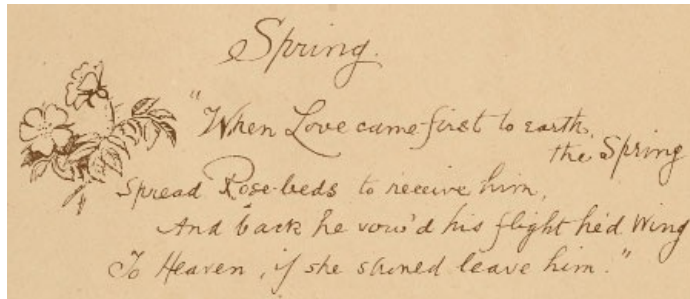 Spring.
"When Love came first to earth,
the Spring
Spread Rose-beds to receive him,
And back he vow'd his flight he'd Wing
To Heaven, if she should leave him."